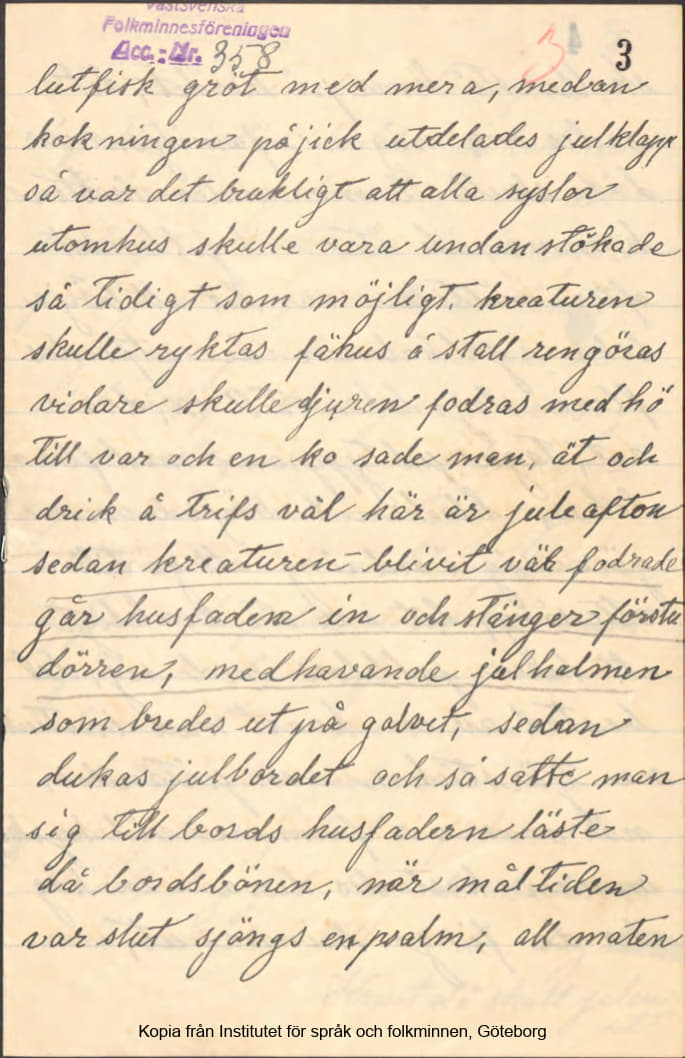 Västsvenska
Folkminnesföreningen
Acc.-Nr. 358
3
3
lutfisk gröt med mera, medan
kokningen påjick utdelades julklapp
så var det brukligt att alla syslor
utomhus skulle vara undanstökade
så tidigt som möjligt. kreaturen
skulle ryktas fähus å stall rengöras
vidare skulle djuren fodras med hö
till var och en ko sade man, ät och
drick å trifs väl här är juleafton
sedan kreaturen blivit väl fodrade
går husfadern in och stänger förstu
dörren, medhavande julhalmen
som bredes ut på golvet, sedan
dukas julbordet och så satte man
sig till bords husfadern läste
då bordsbönen, när måltiden
var slut sjöngs en psalm, all maten
Kopia från Institutet för språk och folkminnen, Göteborg